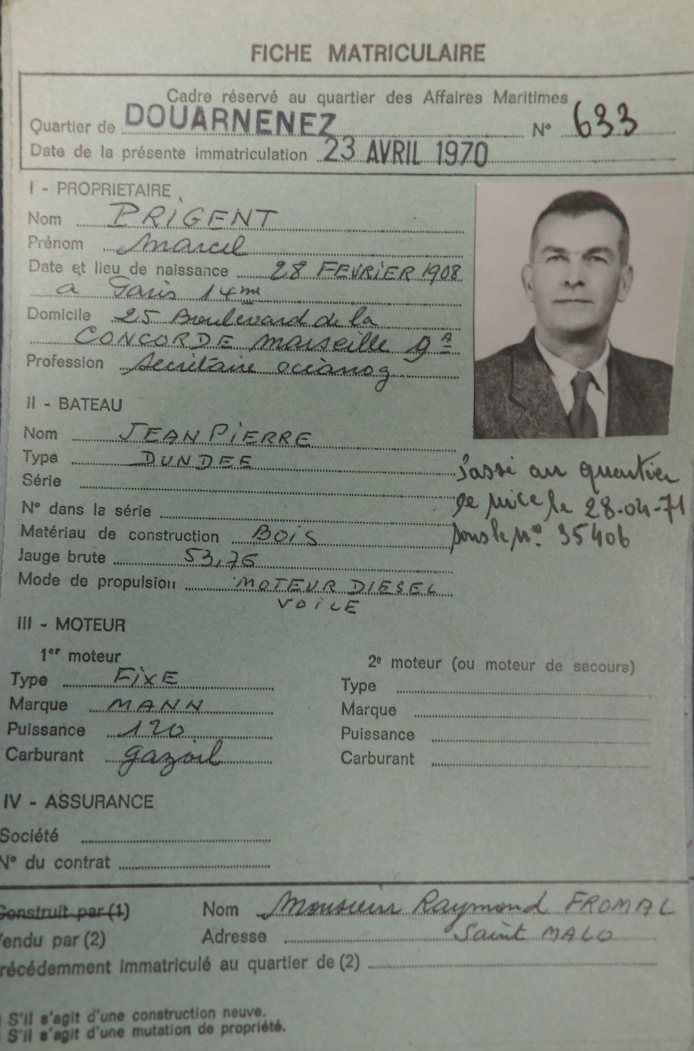 FICHE MATRICULAIRE
Cadre réservé au quartier des Affaires Maritimes
Quartier de DOUARNENEZ N° 633
Date de la présente immatriculation 23 AVRIL 1970
I - PROPRIETAIRE
Nom PRIGENT
Prénom Marcel
Date et lieu de naissance 28 FEVRIER 1908
a Paris 14me
Domicile 25 Boulevard de la
CONCORDE Marseille 9a
Profession Secrétaire océanog
II - BATEAU
Nom JEAN PIERRE
Type DUNDEE
Série
N° dans la série
Matériau de construction BOIS
Jauge brute 53,76
Mode de propulsion MOTEUR DIESEL
VOILE
Passé au quartier
de Nice le 28-04-71
sous le N° 35406
III - MOTEUR
1er moteur
Type FIXE
Marque MANN
Puissance 120
Carburant gazoil
2e moteur (ou moteur de secours)
Type
Marque
Puissance
Carburant
IV - ASSURANCE
Société
N° du contrat
Construit par (1) Nom Monsieur Raymond FROMAL
Vendu par (2) Adresse Saint MALO
récédemment immatriculé au quartier de (2)
S'il s'agit d'une construction neuve.
S'il s'agit d'une mutation de propriété.